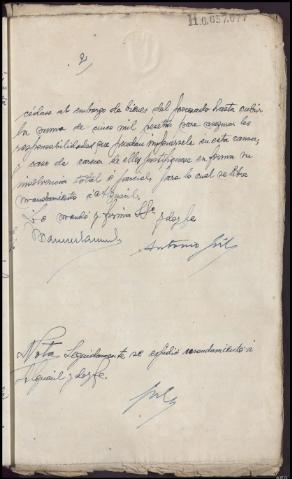 11.0.657.077
2
cédase al embargo de bienes del procesado hasta cubrir
la suma de cinco mil pesetas para asegurar las
responsabilidades que puedan imponersele en esta causa,
y caso de carecer de ellos justifiquese en forma su
insolvencia total ó parcial, para lo cual se libra
mandamiento al alguacil.
Lo mandó y firma SSª y doy fe
Antonio Gil
Nota Seguidamente se expidió mandamiento á
alguacil y doy fe.
Gil